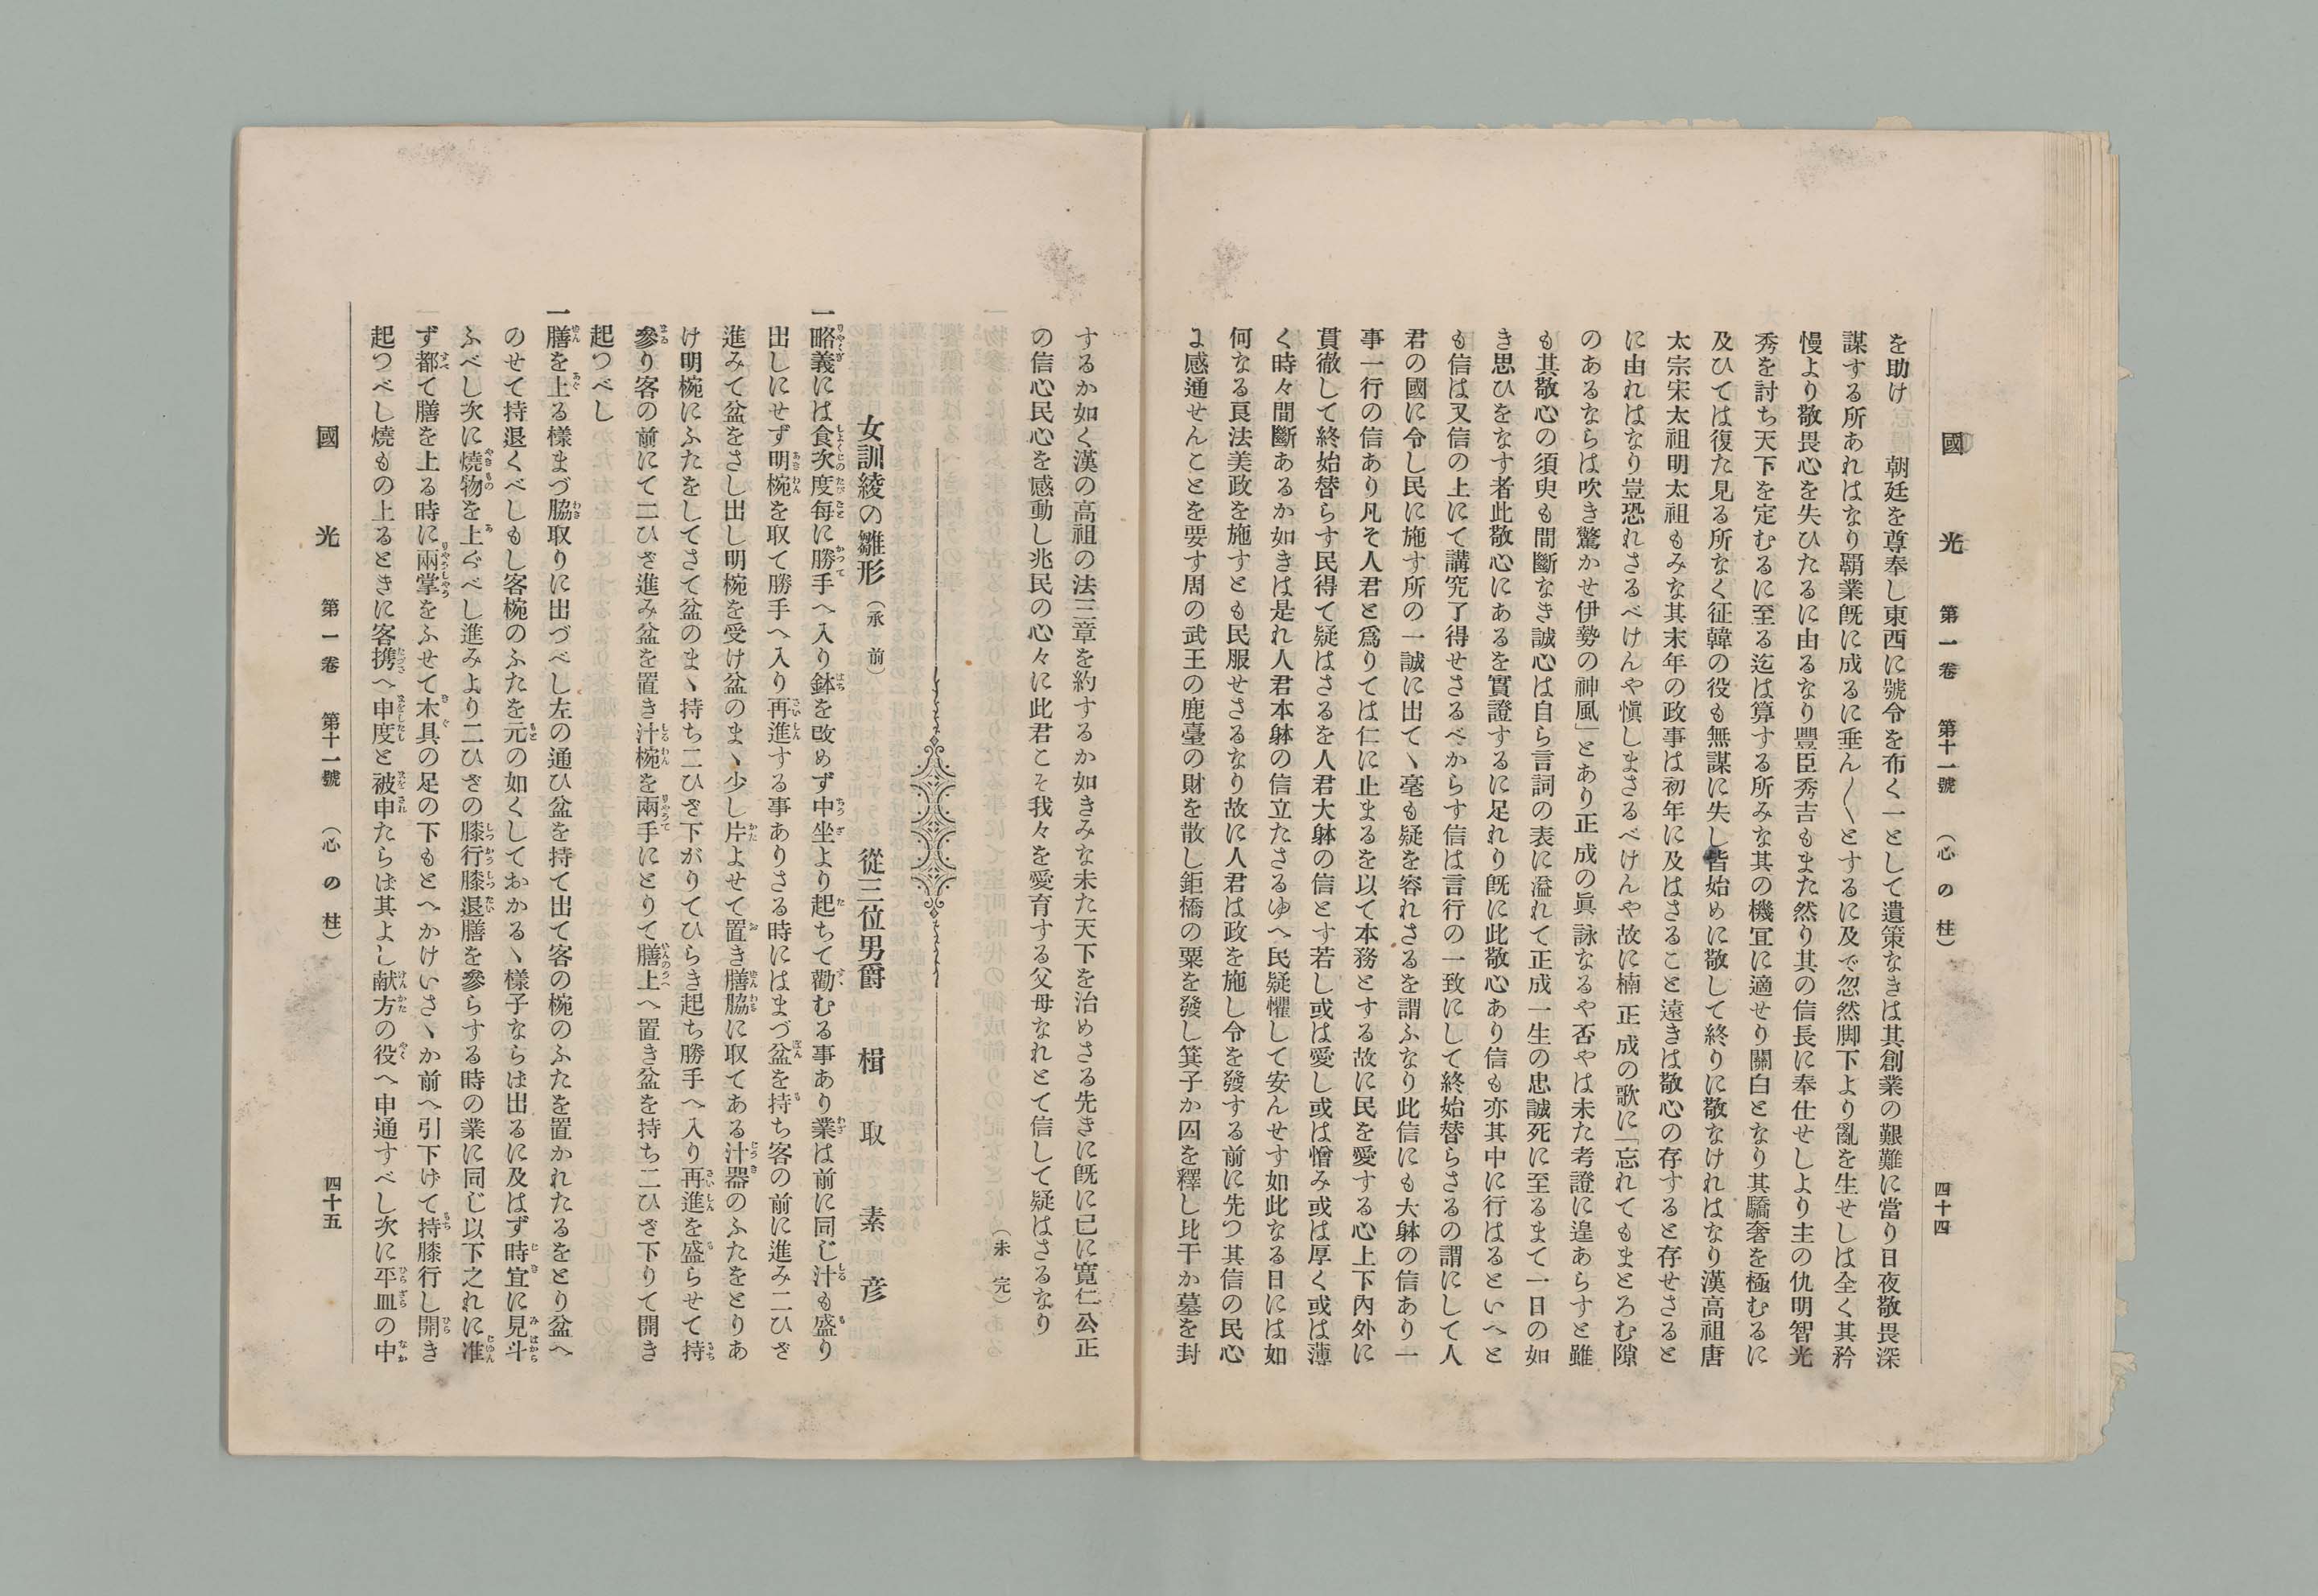 國光 第一卷 第十一號 (心の柱) 四十四
を助け　朝廷を尊奉し東西に號令を布く一として遺策なきは其創業の艱難に當り日夜敬畏深
謀する所あれはなり覇業旣に成るに垂ん〳〵とするに及で忽然脚下より亂を生せしは全く其矜
慢より敬畏心を失ひたるに由るなり豐臣秀吉もまた然り其の信長に奉仕せしより主の仇明智光
秀を討ち天下を定むるに至る迄は算する所みな其の機宜に適せり關白となり其驕奢を極むるに
及ひては復た見る所なく征韓の役も無謀に失し皆始めに敬して終りに敬なけれはなり漢高祖唐
太宗宋太祖明太祖もみな其末年の政事は初年に及はさること遠きは敬心の存すると存せさると
に由れはなり豈恐れさるべけんや愼しまさるべけんや故に楠正成の歌に「忘れてもまとろむ隙
のあるならは吹き驚かせ伊勢の神風」とあり正成の眞詠なるや否やは未た考證に遑あらすと雖
も其敬心の須臾も間斷なき誠心は自ら言詞の表に溢れて正成一生の忠誠死に至るまて一日の如
き思ひをなす者此敬心にあるを實證するに足れり旣に此敬心あり信も亦其中に行はるといへと
も信は又信の上にて講究了得せさるべからす信は言行の一致にして終始替らさるの謂にして人
君の國に令し民に施す所の一誠に出てヽ毫も疑を容れさるを謂ふなり此信にも大躰の信あり一
事一行の信あり凡そ人君と爲りては仁に止まるを以て本務とする故に民を愛する心上下內外に
貫徹して終始替らす民得て疑はさるを人君大躰の信とす若し或は愛し或は憎み或は厚く或は薄
く時々間斷あるか如きは是れ人君本躰の信立たさるゆへ民疑懼して安んせす如此なる日には如
何なる良法美政を施すとも民服せさるなり故に人君は政を施し令を發する前に先つ其信の民心
に感通せんことを要す周の武王の鹿臺の財を散し鉅橋の粟を發し箕子か囚を釋し比干か墓を封
するか如く漢の高祖の法三章を約するか如きみな未た天下を治めさる先きに旣に已に寬仁公正
の信心民心を感動し兆民の心々に此君こそ我々を愛育する父母なれとて信して疑はさるなり
(未完)
女訓綾の雛形 (承前) 從三位男爵 楫取素彦
一略義には食次度每に勝手へ入り鉢を改めず中坐より起ちて勸むる事あり業は前に同じ汁も盛り
出しにせず明椀を取て勝手へ入り再進する事ありさる時にはまづ盆を持ち客の前に進み二ひざ
進みて盆をさし出し明椀を受け盆のまヽ少し片よせて置き膳脇に取てある汁器のふたをとりあ
け明椀にふたをしてさて盆のまヽ持ち二ひざ下がりてひらき起ち勝手へ入り再進を盛らせて持
參り客の前にて二ひざ進み盆を置き汁椀を兩手にとりて膳上へ置き盆を持ち二ひざ下りて開き
起つべし
一膳を上る樣まづ脇取りに出づべし左の通ひ盆を持て出て客の椀のふたを置かれたるをとり盆へ
のせて持退くべしもし客椀のふたを元の如くしておかるヽ樣子ならは出るに及はず時宜に見斗
ふべし次に燒物を上ぐべし進みより二ひざの膝行膝退膳を參らする時の業に同じ以下之れに准
ず都て膳を上る時に兩掌をふせて木具の足の下もとへかけいさヽか前へ引下げて持膝行し開き
起つべし燒もの上るときに客携へ申度と被申たらは其よし献方の役へ申通すべし次に平皿の中
國光 第一卷 第十一號 (心の柱) 四十五